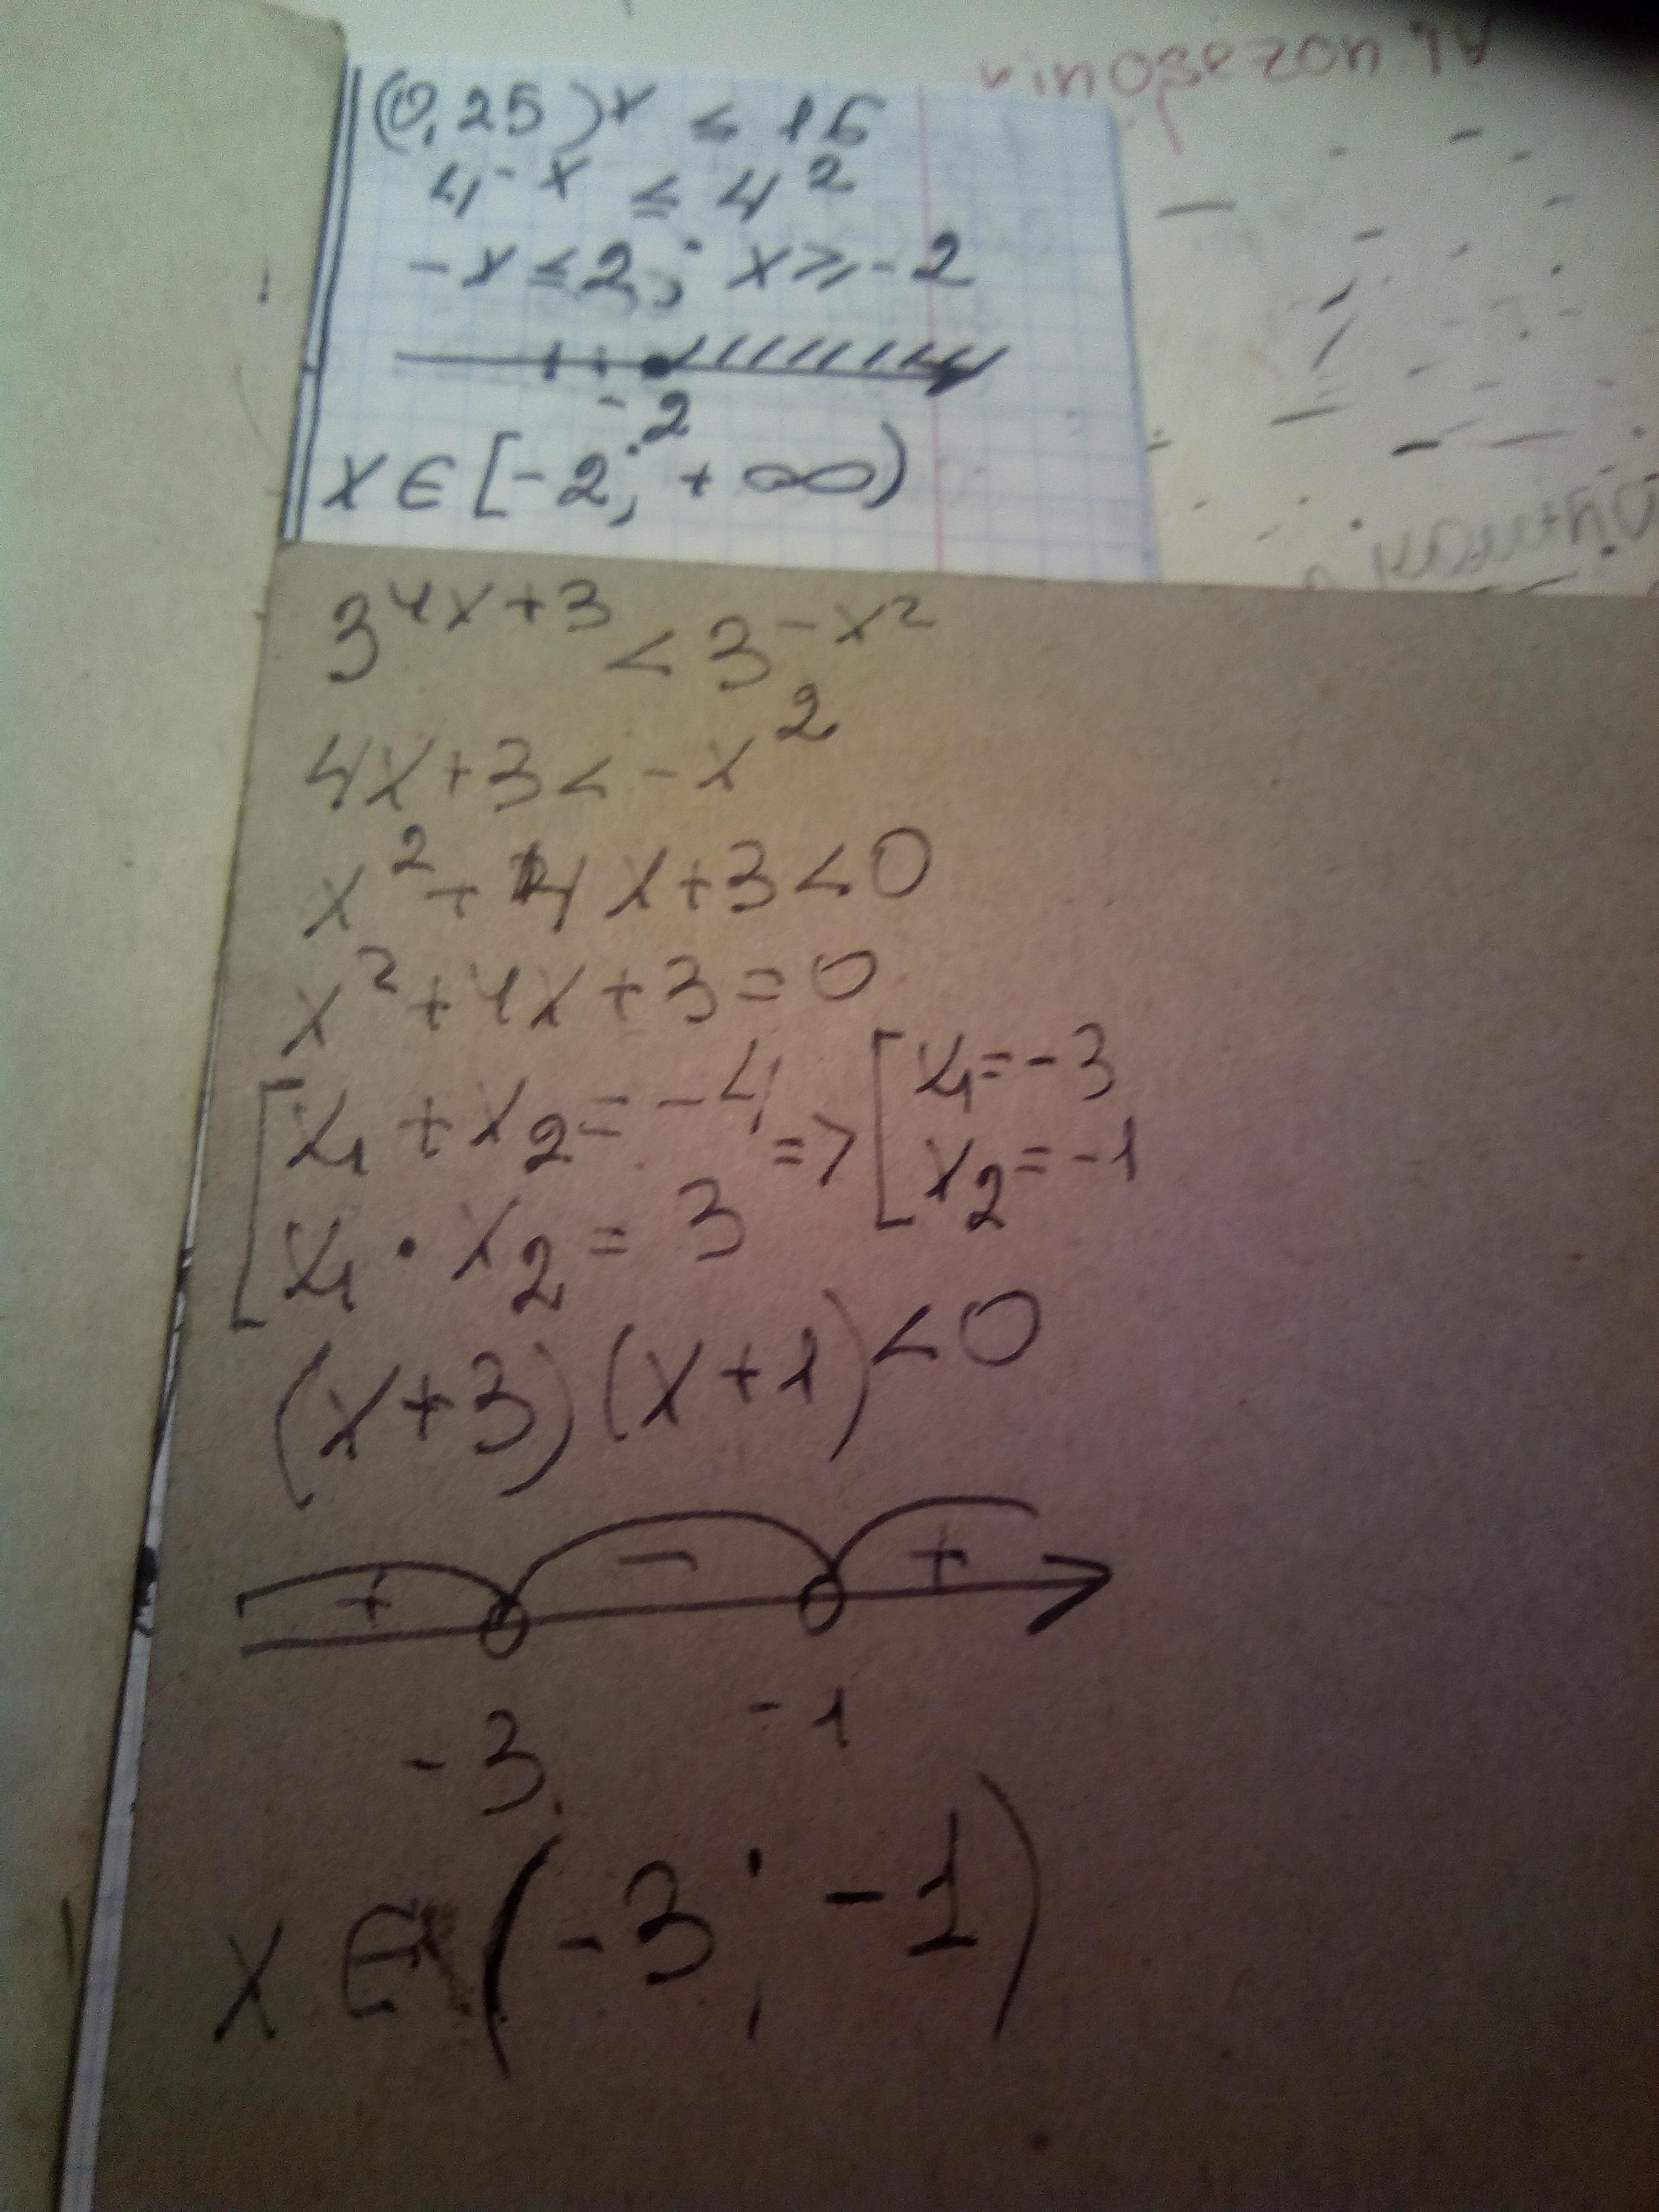 (0,25)^x ≤ 16
4^-x ≤ 4^2
-x ≤ 2; x ≥ -2
-2
x ∈ [-2; +∞)
3^4x+3 < 3^-x^2
4x+3 < -x^2
x^2 + 4x+3 < 0
x^2 + 4x + 3 = 0
[x1 + x2 = -4 => [x1 = -3
x1 · x2 = 3 x2 = -1
(x+3)(x+1) < 0
+ - +
-3 -1
x ∈ (-3; -1)